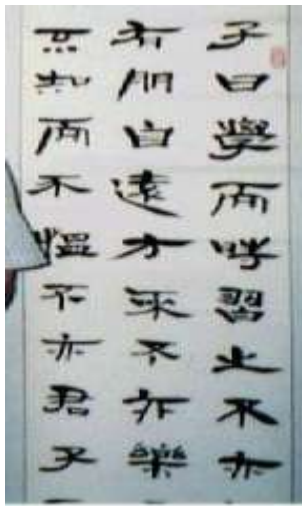 子曰學而時習之不亦
有朋自遠方來不亦樂
不知而不慍不亦君子